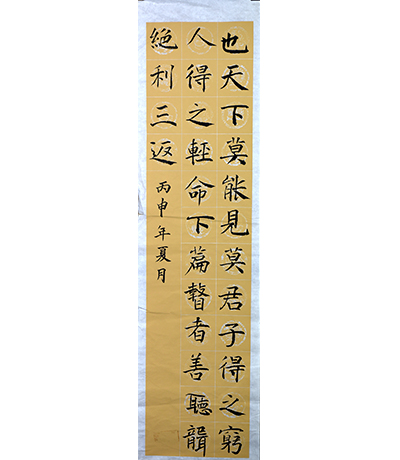 也天下莫能見莫君子得之窮
人得之輕命下篇瞽者善聽聾
絕利三返
丙申年夏月